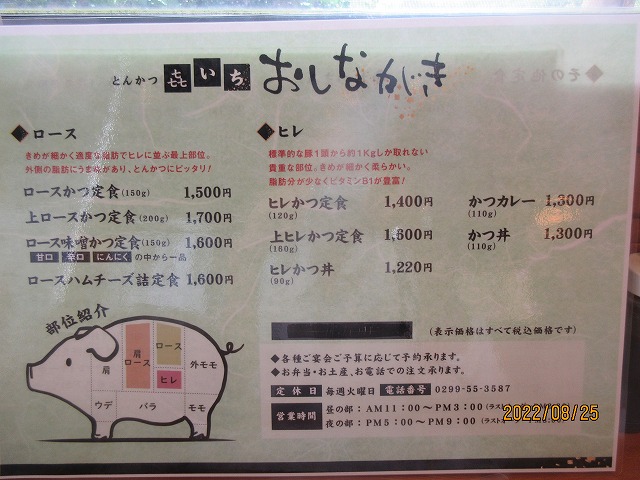 とんかつ 㐂いち おしながき
◆その他
◆ロース
きめが細かく適度な脂肪でヒレに並ぶ最上部位。
外側の脂肪にうま味があり、とんかつにピッタリ!
ロースかつ定食(150g) 1,500円
上ロースかつ定食(200g) 1,700円
ロース味噌かつ定食(150g) 1,600円
甘口 辛口 にんにく の中から一品
ロースハムチーズ詰定食 1,600円
◆ヒレ
標準的な豚1頭から約1Kgしか取れない
貴重な部位。きめが細かく柔らかい。
脂肪分が少なくビタミンB1が豊富!
ヒレかつ定食 1,400円
(120g)
上ヒレかつ定食 1,600円
(160g)
ヒレかつ丼 1,220円
(90g)
かつカレー 1,300円
(110g)
かつ丼 1,300円
(110g)
(表示価格はすべて税込価格です)
部位紹介
肩
肩ロース
ロース
ヒレ
外モモ
ウデ
バラ
モモ
◆各種ご宴会ご予算に応じて予約承ります。
◆お弁当・お土産、お電話での注文承ります。
定休日 毎週火曜日 電話番号 0299-55-3587
営業時間 昼の部:AM11:00〜PM3:00(ラスト
夜の部:PM5:00〜PM9:00(ラスト
2022/08/25